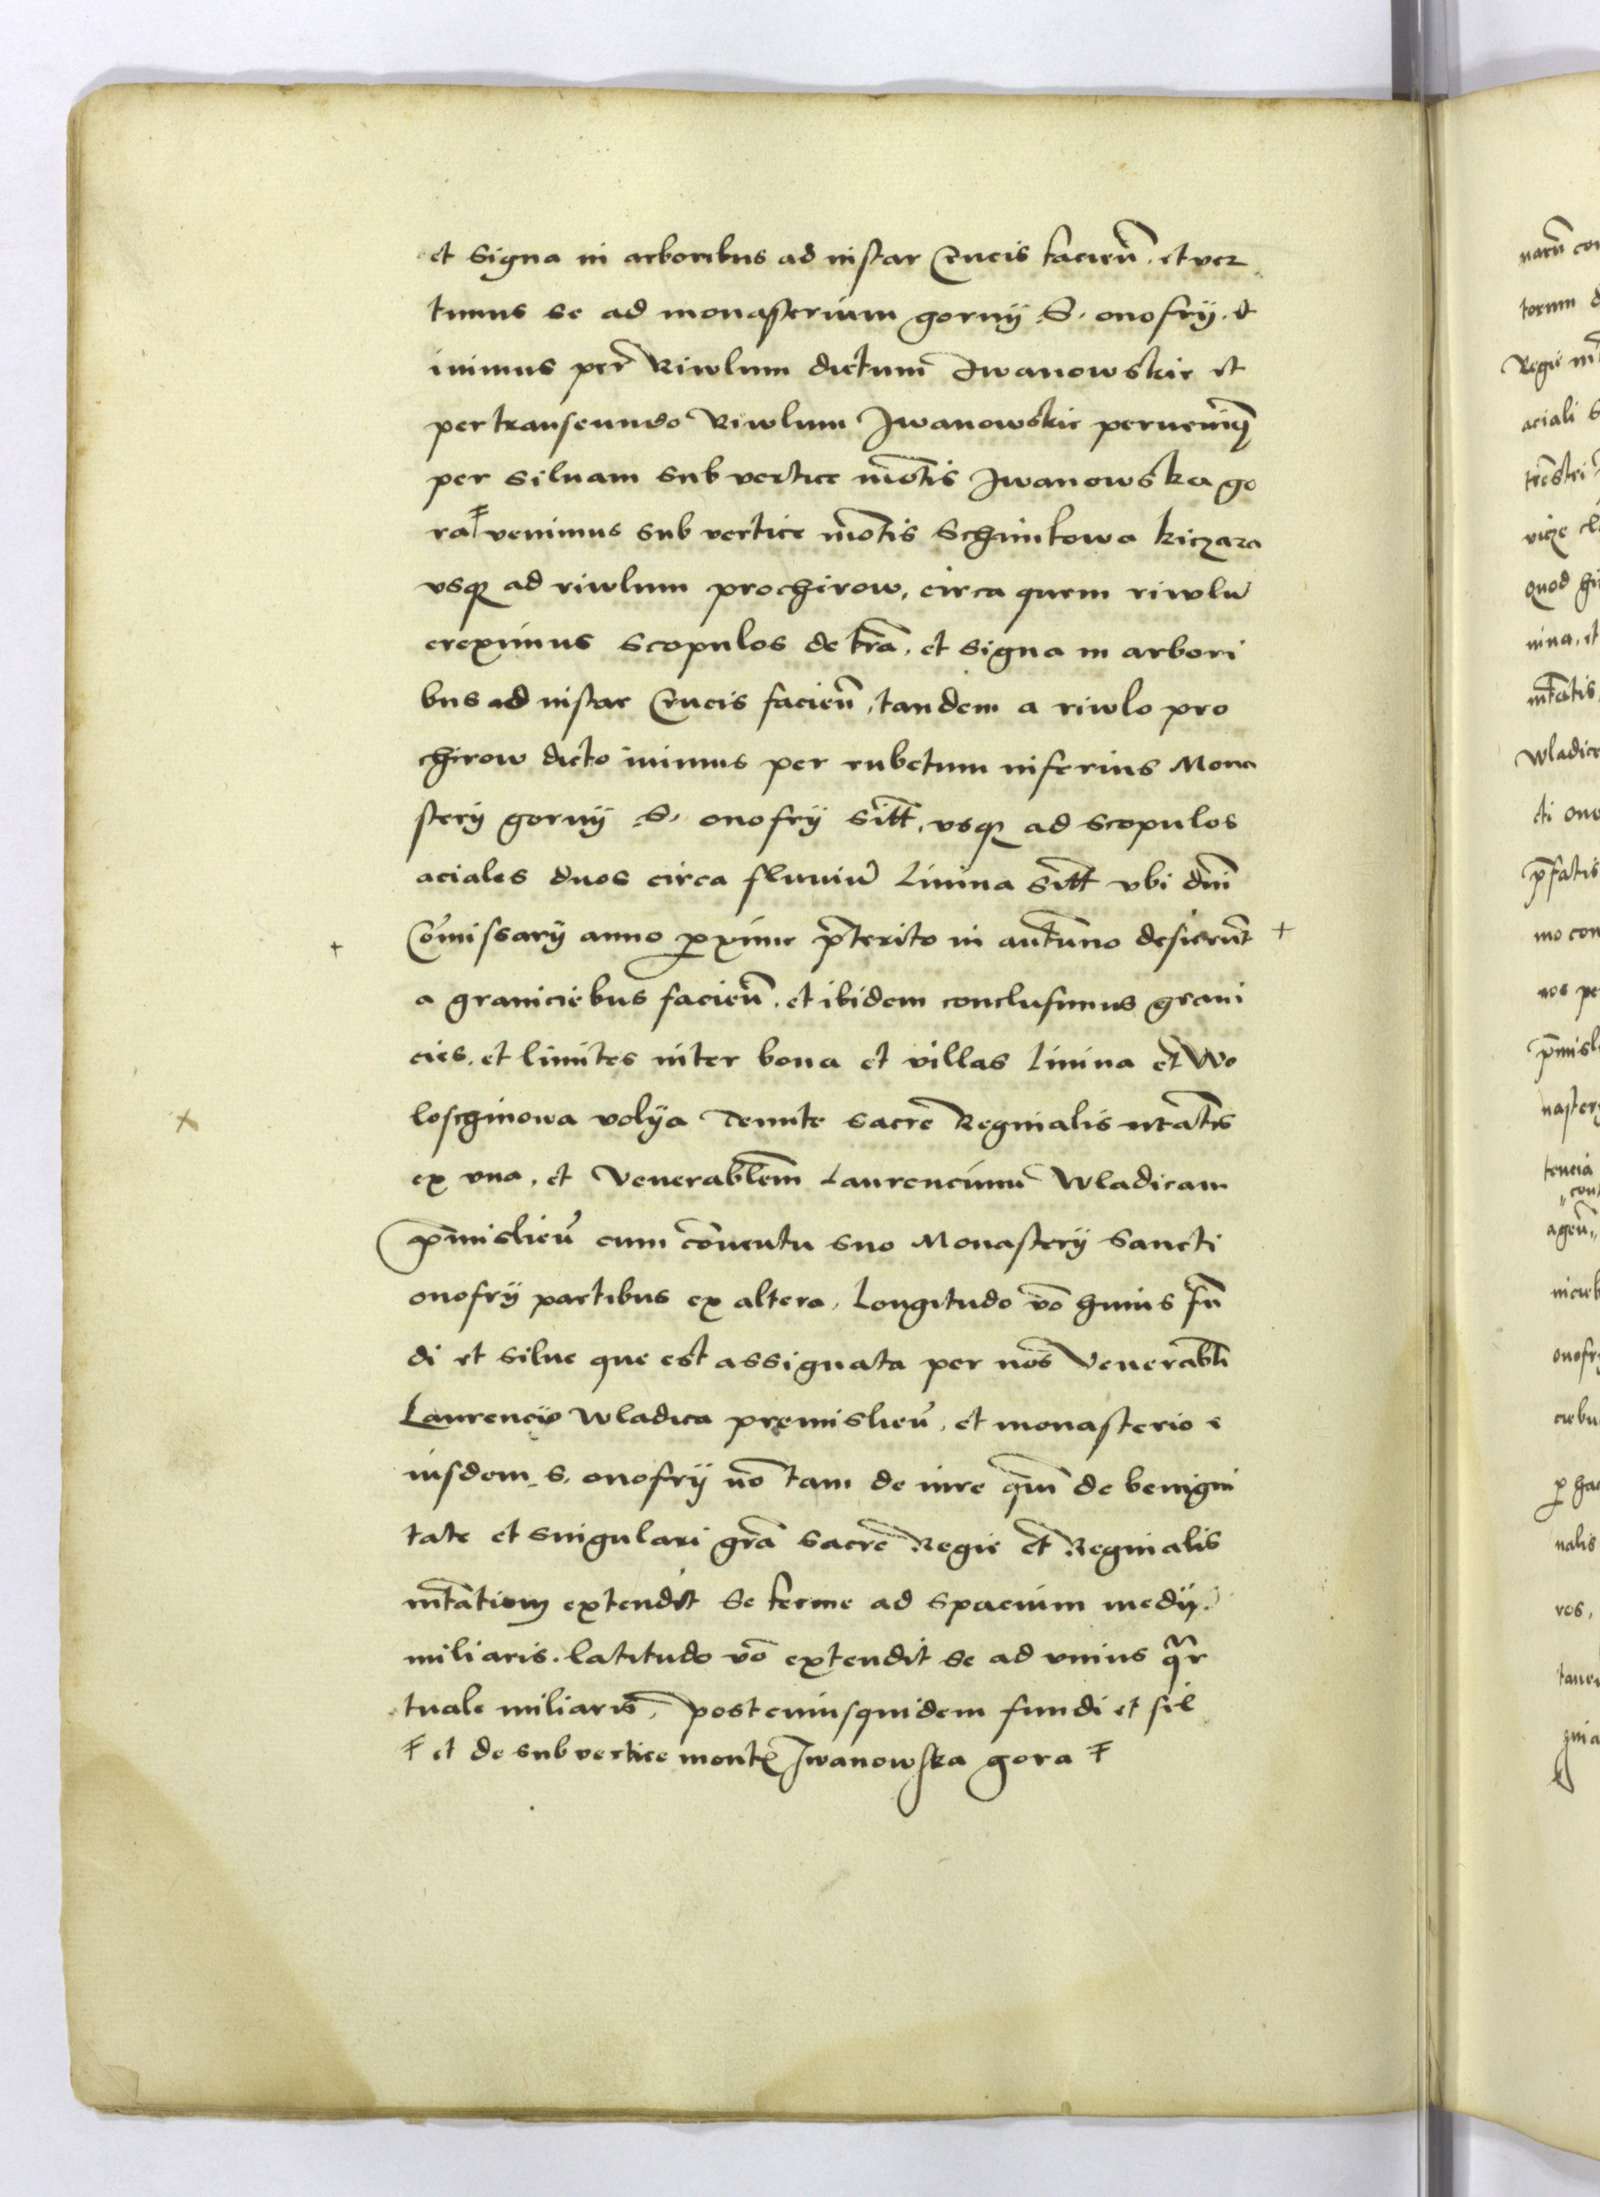 et signa in arboribus ad instar Crucis facieñ. et ver
timus se ad monasterium gorny S. onofry. et
iuimus per Riwlum dictum Iwanowskie et
pertranseundo Riwlum Iwanowskie peruenimꝯ
per siluam sub vertice mōtis Iwanowska go
ra ꝉ venimus sub vertice mōtis Schimkowa kiczara
vsqꝫ ad riwlum prochirow, circa quem riwlū
ereximus scopulos de tr̄a, et signa in arbori
bus ad instar Crucis facieñ, tandem a riwlo pro
chirow dicto iuimus per rubetum inferius Mona
stery gorny S. onofry sitt̄, vsqꝫ ad scopulos
aciales duos circa fluuiū Linina sitt̄ vbi dn̄i
+ Cōmissarij anno ꝓxime p̄terito in autūno desierūt +
a graniciebus facieñ. et ibidem conclusimus grani
cies. et limites inter bona et villas Linina et Wo
x loschinowa volya Tenute sacre Reginalis mtatis
ex vna, et Venerablem̄ Laurencium Wladicam
p̄mislieñ cum cōuentu suo Monastery Sancti
onofry partibus ex altera, Longitudo vō huius fū
di et silue que est assignata per nos Venerabli
Laurencio Wladica premislieñ, et monasterio e
iusdem S. onofrij nō tam de iure qm̄ de benigni
tate et singulari gr̄a sacre Regie et Reginalis
mtatum extendit se ferme ad spacium medij
miliaris. latitudo vō extendit se ad vnius qr
tuale miliaris, post cuiusquidem fundi et sil
ꝉ et de sub vertice montꝭ Iwanowska gora ꝉ